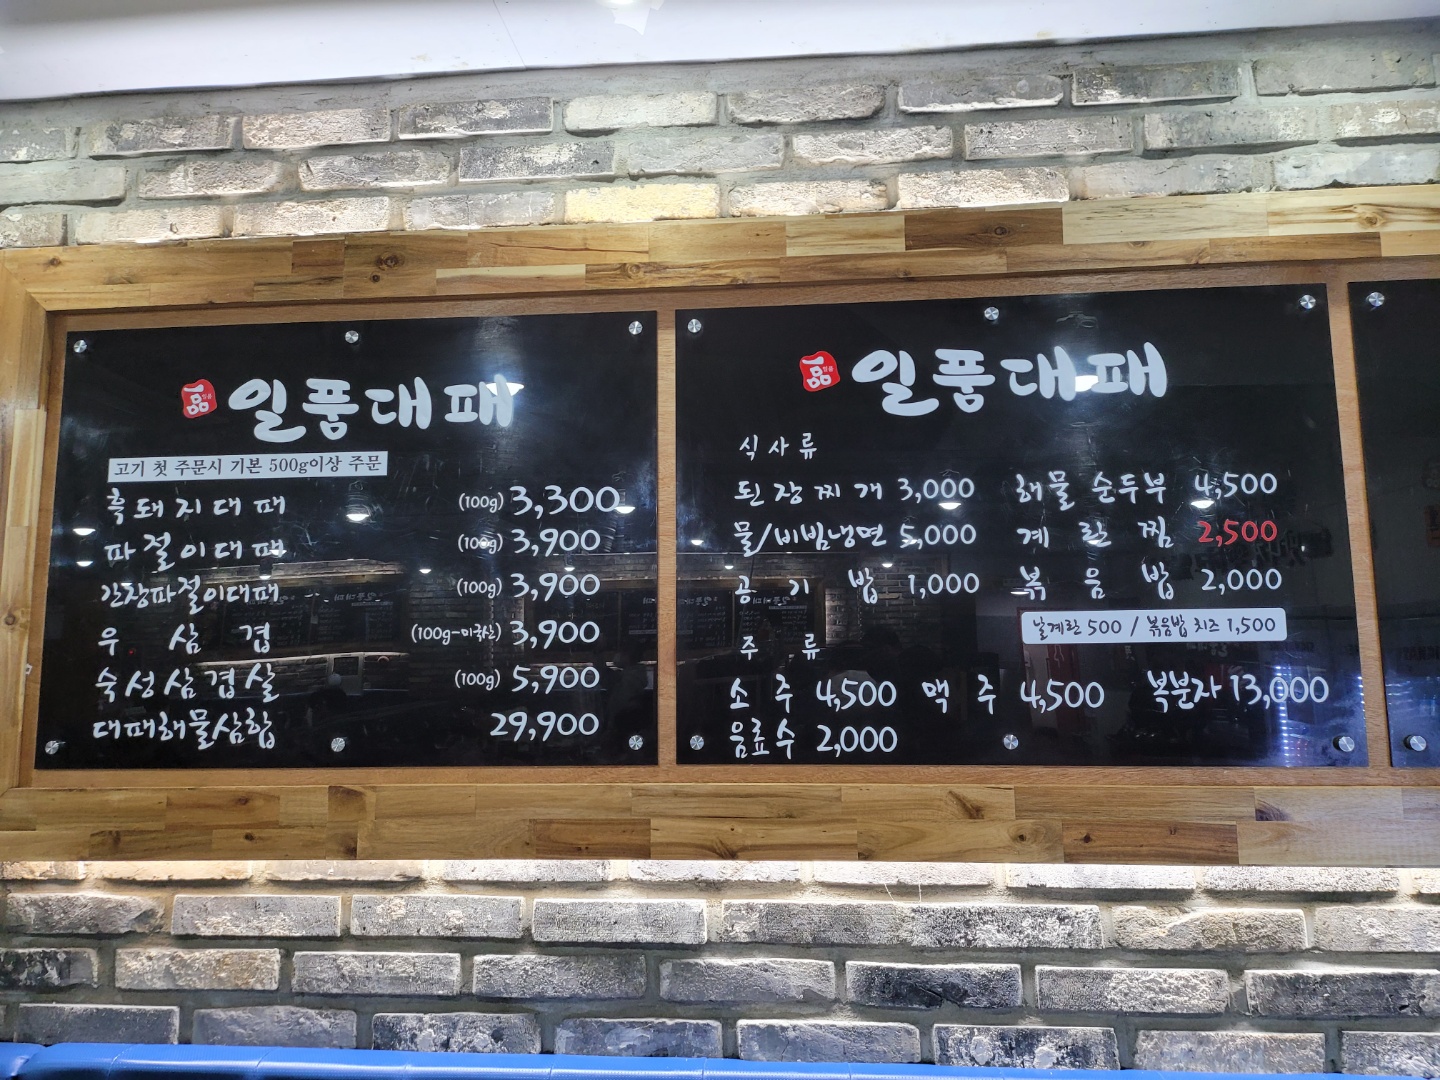 一品 일품 일품대패
고기 첫 주문시 기본 500g이상 주문
흑돼지대패 (100g) 3,300
파절이대패 (100g) 3,900
간장파절이대패 (100g) 3,900
우삼겹 (100g-미국산) 3,900
숙성삼겹살 (100g) 5,900
대패해물삼합 29,900
一品 일품 일품대패
식사류
된장찌개 3,000 해물순두부 4,500
물/비빔냉면 5,000 계란찜 2,500
공기밥 1,000 볶음밥 2,000
날계란 500 / 볶음밥 치즈 1,500
주류
소주 4,500 맥주 4,500 복분자 13,000
음료수 2,000